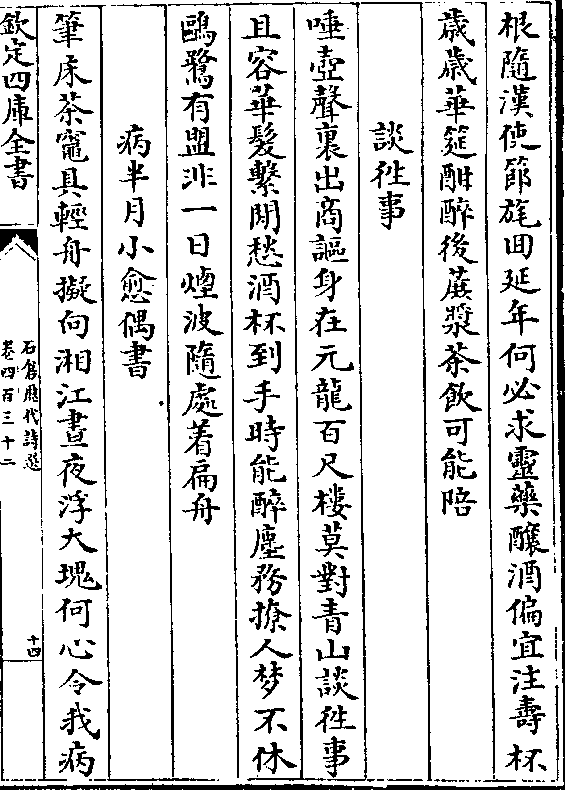 根隨漢使節旄囬延年何必求靈藥釀酒偏宜注壽杯
歳歳華筵酣醉後蔗漿茶飲可能陪
談徃事
唾壺聲裏出商謳身在元龍百尺樓莫對青山談徃事
且容華髮繫閒愁酒杯到手時能醉塵務撩人梦不休
鷗鷺有盟非一日煙波隨處着扁舟
病半月小愈偶書
筆床茶竈具輕舟擬向湘江晝夜浮大塊何心令我病
欽定四庫全書
石倉歴代詩選
卷四百三十二
十四